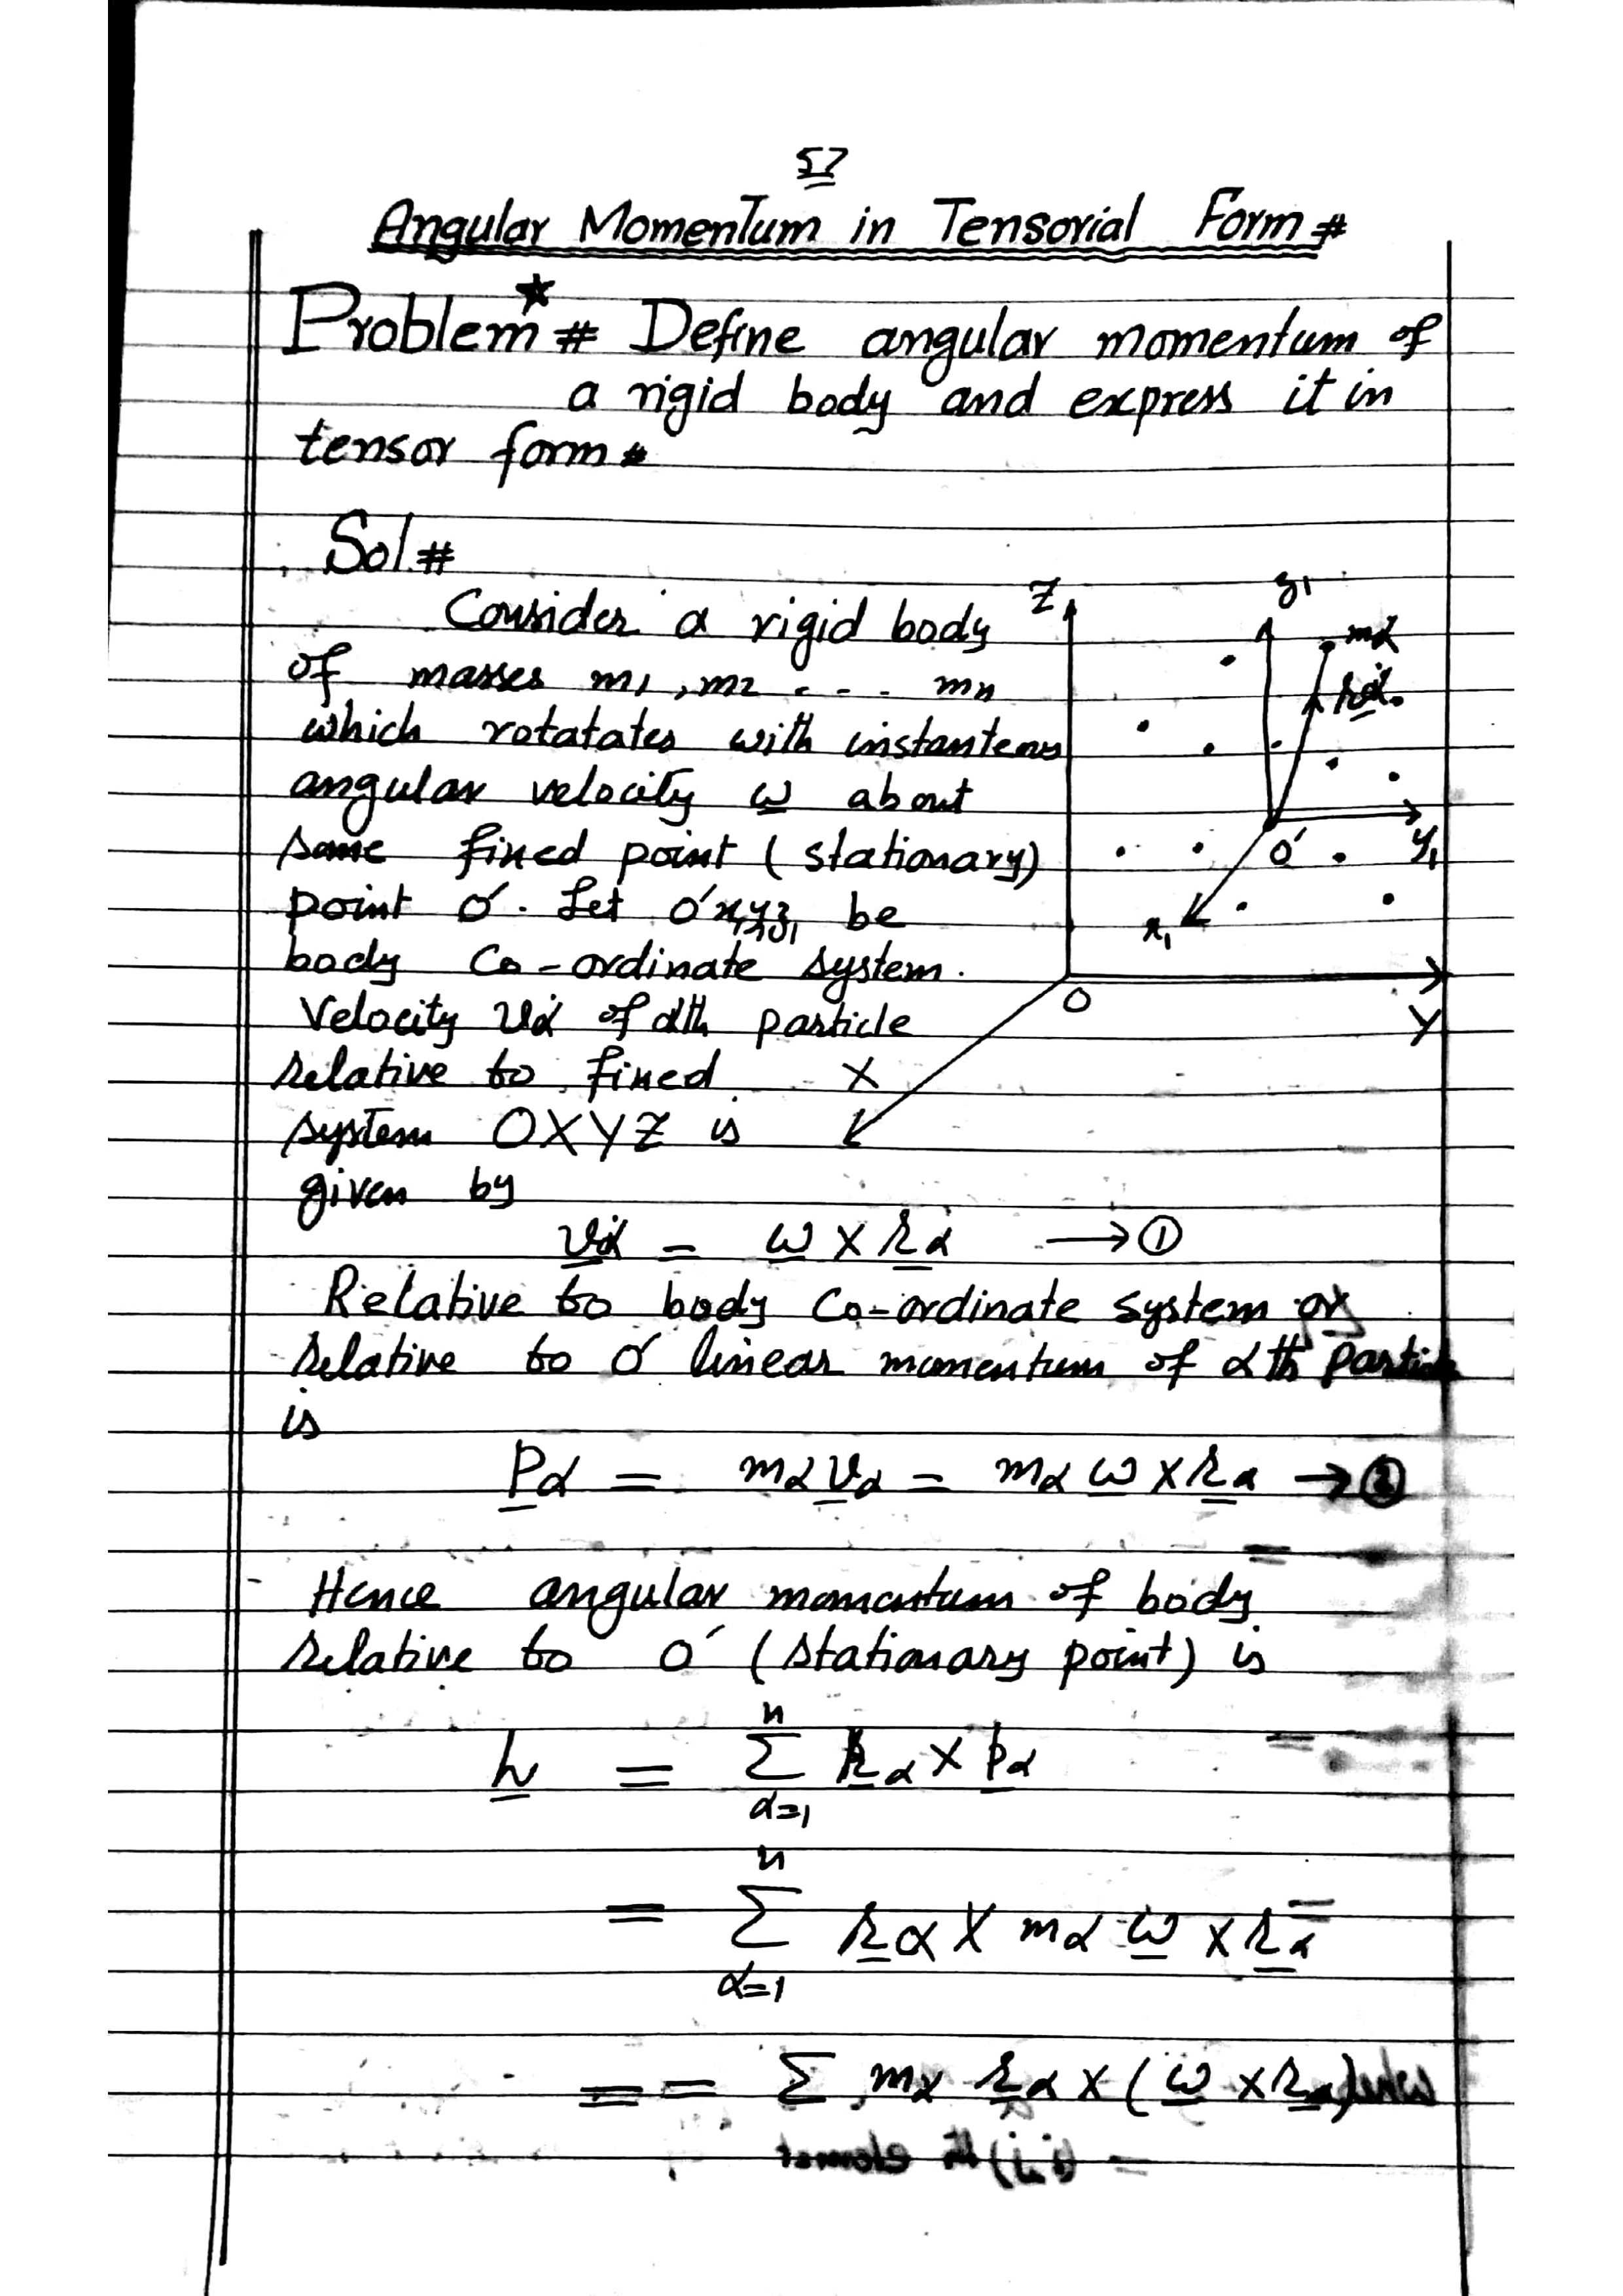 57
Angular Momentum in Tensorial Form #
Problem * # Define angular momentum of
a rigid body and express it in
tensor form #
Sol #
Consider a rigid body
of masses m1, m2 - - - mn
which rotatates with instantens
angular velocity ω about
some fixed point (stationary)
point O'. Let O'x1y1z1 be
body Co-ordinate system.
Velocity vα of αth particle
relative to fixed
system OXYZ is
given by
Z
z1
mα
rα
O'
y1
x1
O
Y
X
vα = ω × rα → ①
Relative to body Co-ordinate system or
relative to O' linear momentum of αth particle
is
Pα = mα vα = mα ω × rα → ②
Hence angular momentum of body
relative to O' (stationary point) is
n
h = Σ rα × pα
α=1
n
= Σ rα × mα ω × rα
α=1
= = Σ mα rα × (ω × rα)